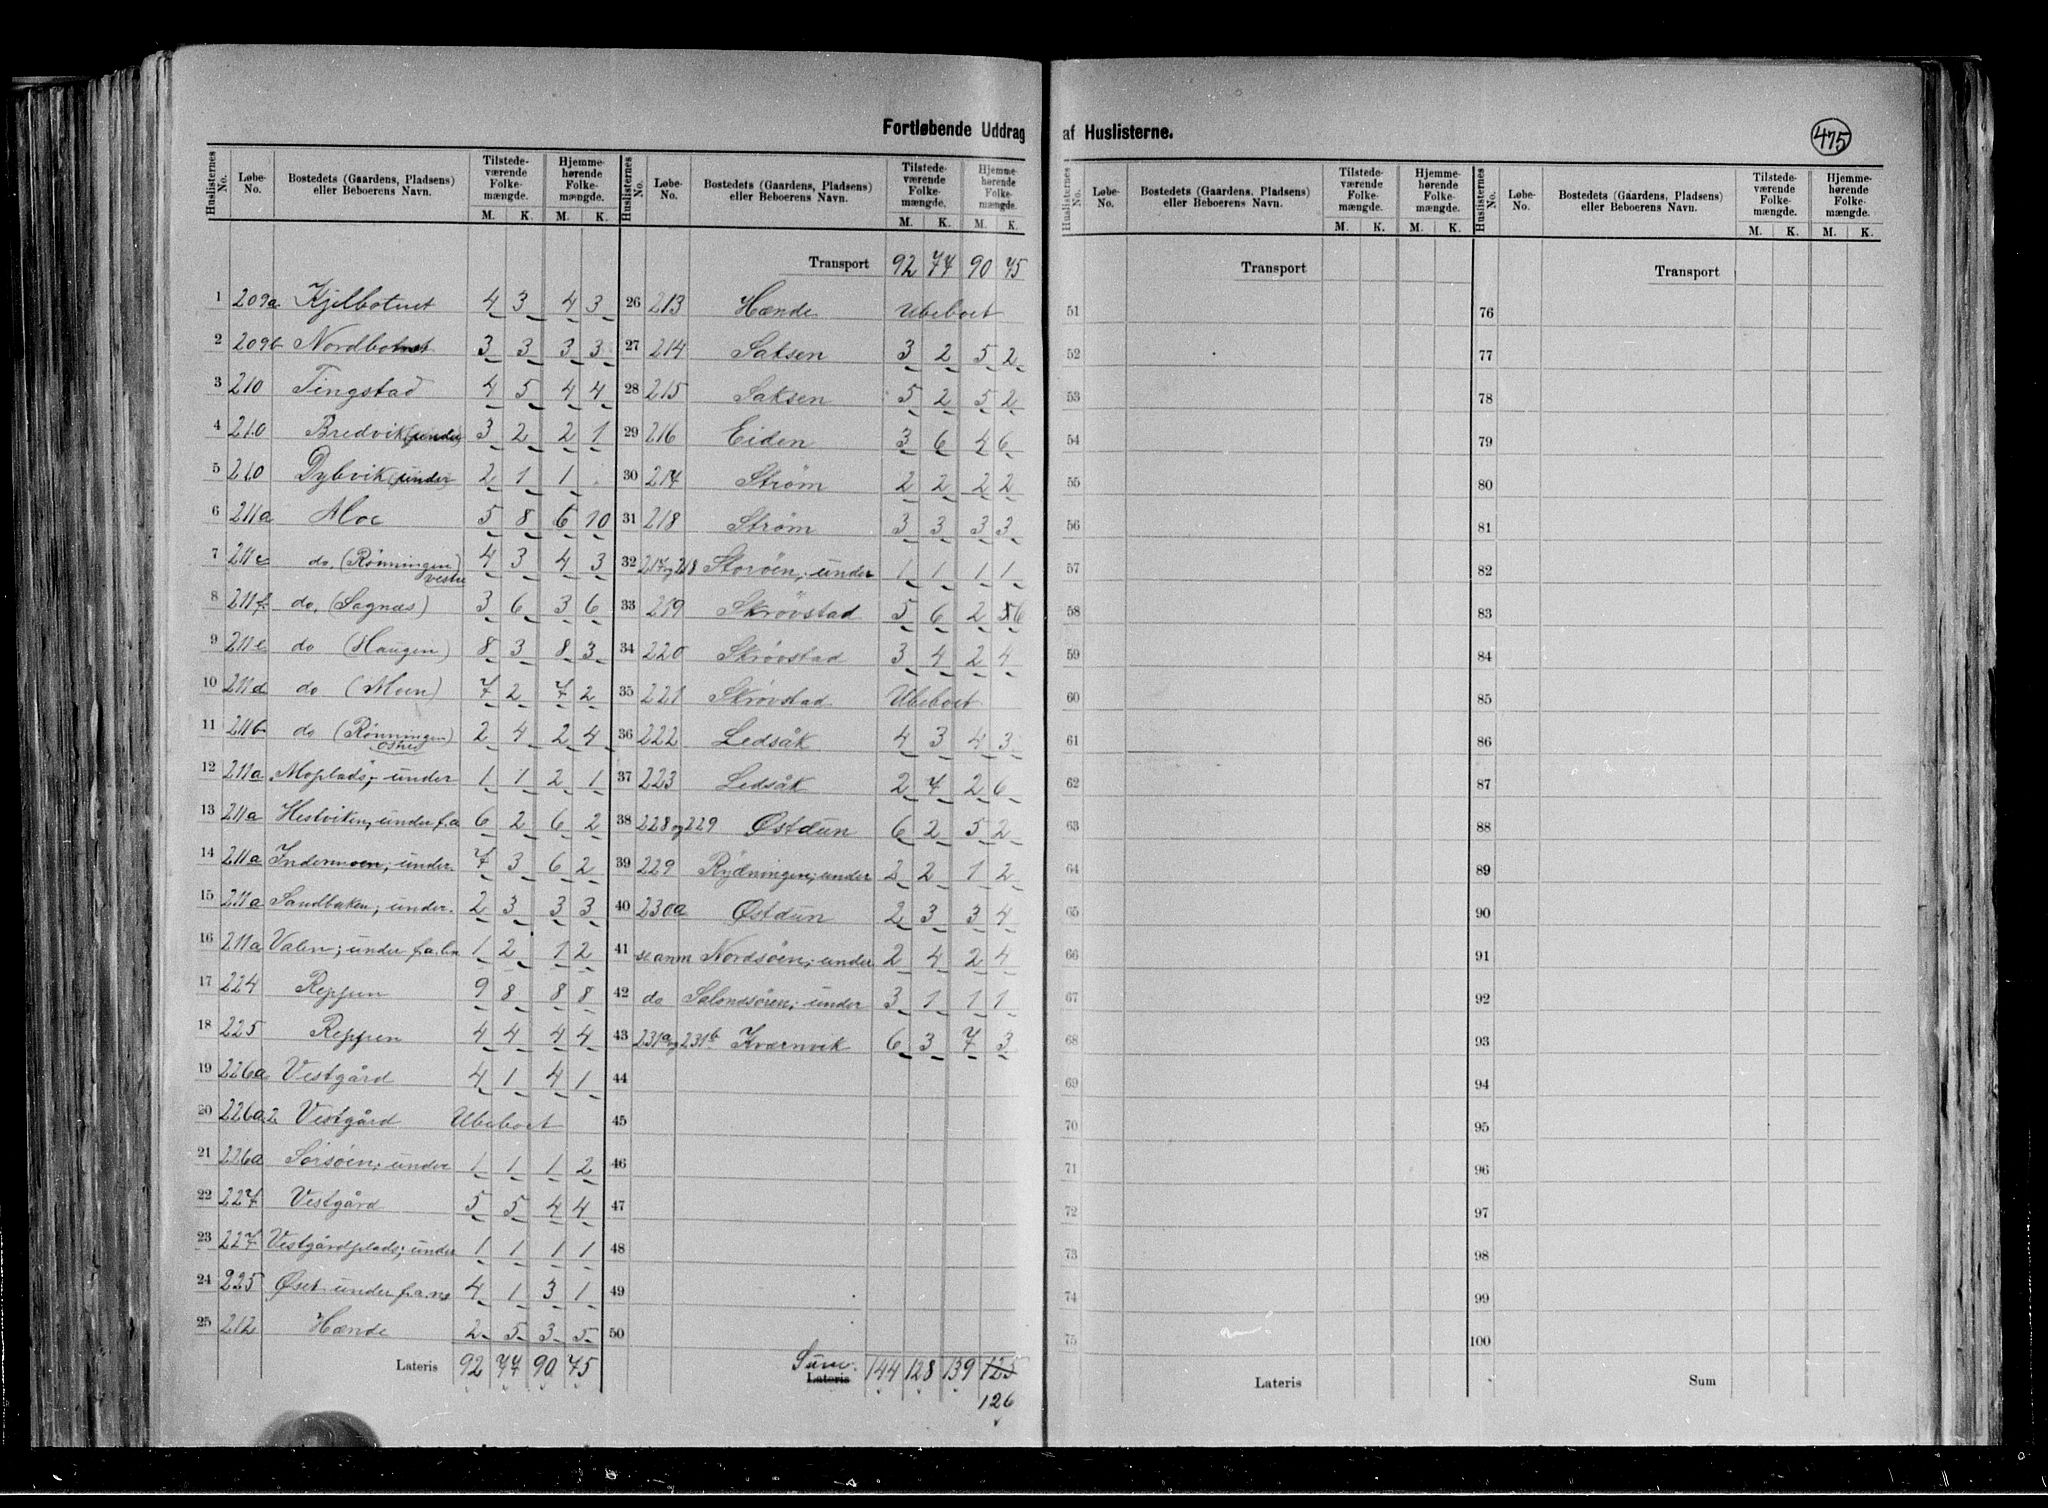 Fortløbende Uddrag af Huslisterne.
475
Huslisternes No. Løbe-No. Bostedets (Gaardens, Pladsens) eller Beboerens Navn. Tilstedeværende Folkemængde. M. K. Hjemmehørende Folkemængde. M. K.
1 209a Kjelbotnet 4 3 4 3
2 209b Nordbotnet 3 3 3 3
3 210 Tingstad 4 5 4 4
4 210 Bredvik (under 3 2 2 1
5 210 Dybvik (under 2 1 1
6 211a Moe 5 8 6 10
7 211c do. (Rønningen vestre 4 3 4 3
8 211f do. (Sagnæs) 3 6 3 6
9 211e do (Haugen) 8 3 8 3
10 211d do (Moen) 7 2 7 2
11 211b do (Rønningen) østre 2 4 2 4
12 211a Moplads; under 1 1 2 1
13 211a Hestviken; under f.a 6 2 6 2
14 211a Indermoen; under. 7 3 6 2
15 211a Sandbaken; under. 2 3 3 3
16 211a Valen; under f.a. 1 2 1 2
17 224 Reppen 9 8 8 8
18 225 Reppen 4 4 4 4
19 226a Vestgård 4 1 4 1
20 226a2 Vestgård Ubeboet
21 226a Sørsøen; under 1 1 1 2
22 227 Vestgård 5 5 4 4
23 227 Vestgårdplads; under 1 1 1 1
24 225 Øset under f.a. 4 1 3 1
25 212 Hænde 2 5 3 5
Lateris 92 77 90 75
Huslisternes No. Løbe-No. Bostedets (Gaardens, Pladsens) eller Beboerens Navn. Tilstedeværende Folkemængde. M. K. Hjemmehørende Folkemængde. M. K.
Transport 92 77 90 75
26 213 Hænde Ubeboet
27 214 Saksen 3 2 5 2
28 215 Saksen 5 2 5 2
29 216 Eiden 3 6 4 6
30 217 Strøm 2 2 2 2
31 218 Strøm 3 3 3 3
32 217 og 218 Storøen; under 1 1 1 1
33 219 Skrøvstad 5 6 2 5 6
34 220 Skrøvstad 3 4 2 4
35 221 Skrøvstad Ubeboet
36 222 Ledsåk 4 3 4 3
37 223 Ledsåk 2 7 2 6
38 228 og 229 Østdun 6 2 5 2
39 229 Rydningen; under 2 2 1 2
40 230a Østdun 2 3 3 4
41 se anm Nordsøen; under 2 4 2 4
42 do under 3 1 1 1
43 231a og 231b Kværnvik 6 3 7 3
44
45
46
47
48
49
50
Sum. Lateris 144 128 139 125
126
Huslisternes No. Løbe-No. Bostedets (Gaardens, Pladsens) eller Beboerens Navn. Tilstedeværende Folkemængde. M. K. Hjemmehørende Folkemængde. M. K.
Transport
51
52
53
54
55
56
57
58
59
60
61
62
63
64
65
66
67
68
69
70
71
72
73
74
75
Lateris
Huslisternes No. Løbe-No. Bostedets (Gaardens, Pladsens) eller Beboerens Navn. Tilstedeværende Folkemængde. M. K. Hjemmehørende Folkemængde. M. K.
Transport
76
77
78
79
80
81
82
83
84
85
86
87
88
89
90
91
92
93
94
95
96
97
98
99
100
Sum